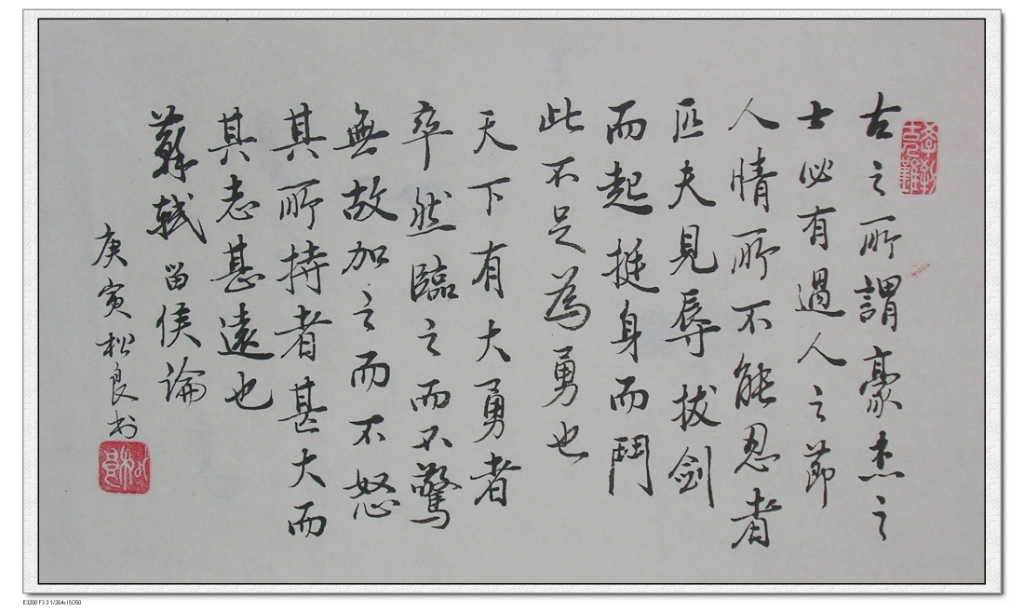 古之所謂豪杰之
士必有過人之節
人情所不能忍者
匹夫見辱拔劍
而起挺身而鬥
此不足為勇也
天下有大勇者
卒然臨之而不驚
無故加之而不怒
其所持者甚大而
其志甚遠也
蘇軾留侯論
庚寅松良书